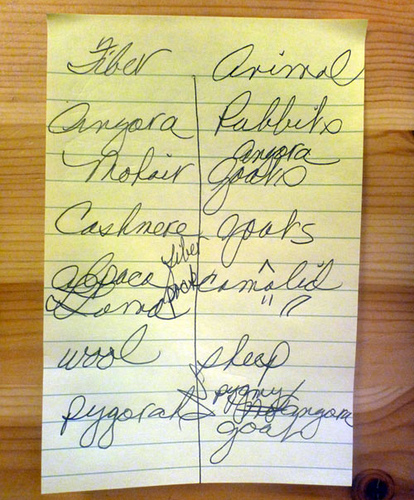 Fiber Animal
angora Rabbits
Mohair angora goats
Cashmere goats
alpaca fiber camalid
Lama pack " "
wool sheep
pygora pygmy angora goats